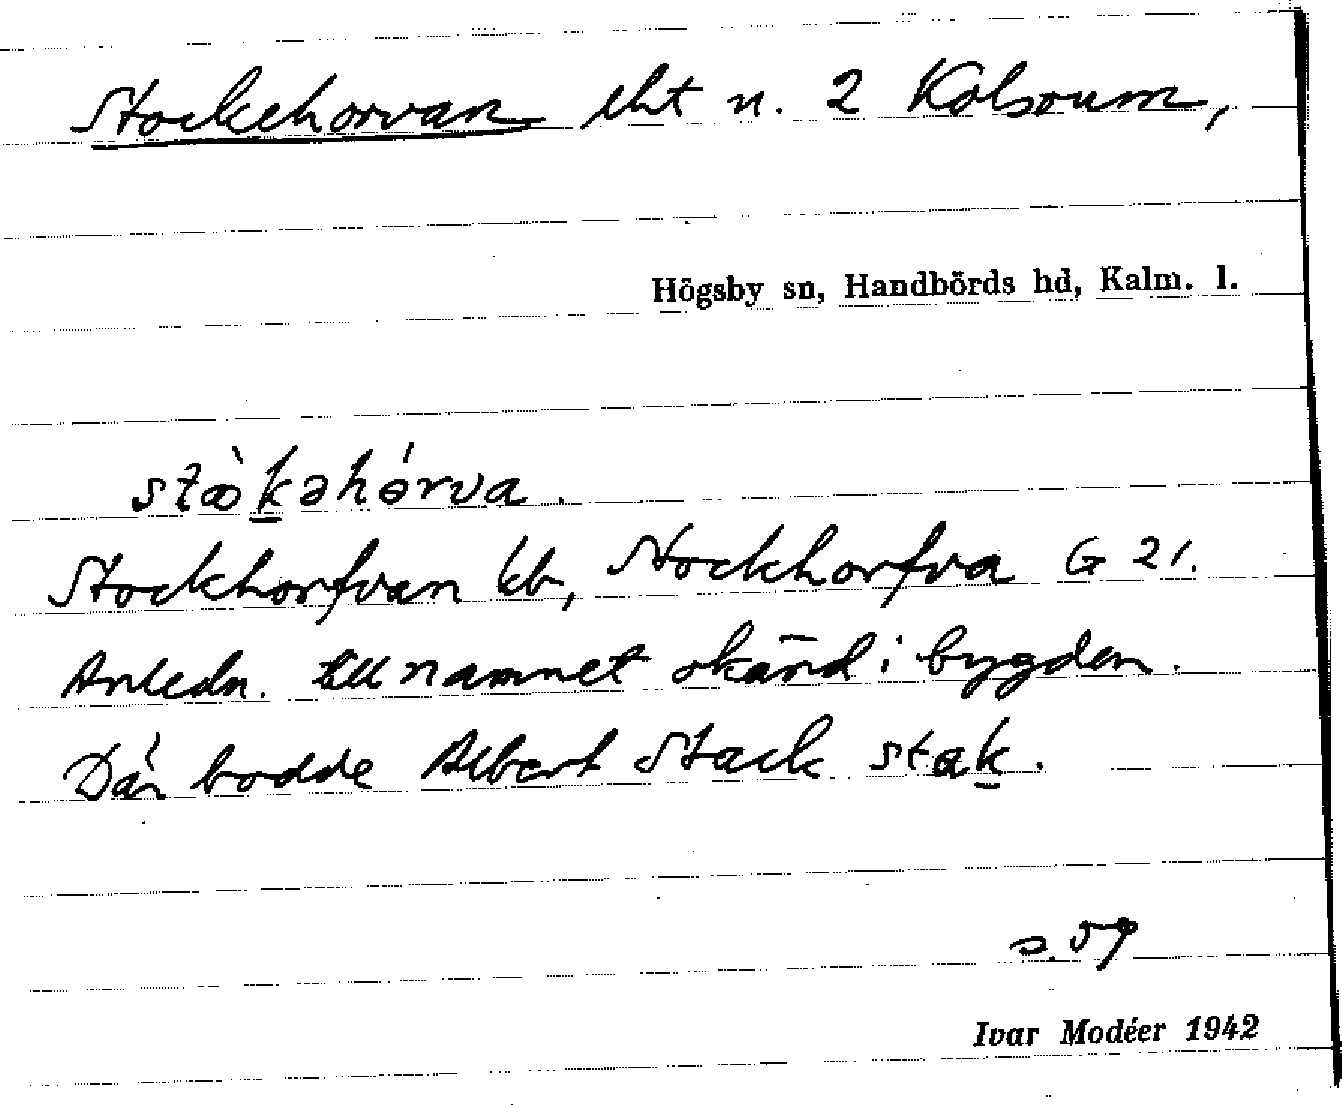 Stockehorvan lht n. 2 Kolsrum,
Högsby sn, Handbörds hd, Kalm. l.
stɷ̀kəhórva.
Stockhorfvan kb, Stockhorfva G 21.
Anledn. till namnet okänd i bygden.
Där bodde Albert Stack stak.
s. 59
Ivar Modéer 1942